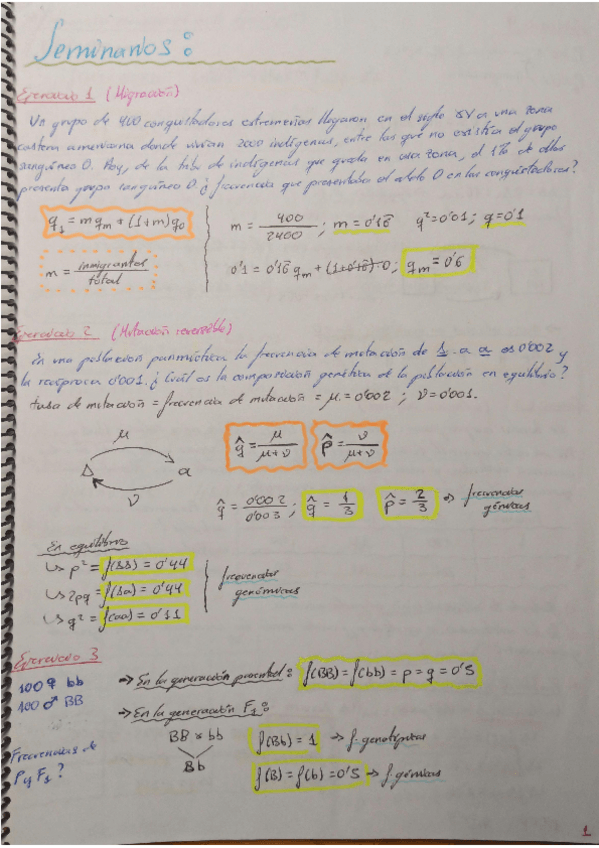 Seminarios:
Ejercicio 1 (Migración)
Un grupo de 400 conquistadores extremeños llegaron en el siglo XV a una zona
costera americana donde vivían 2000 indígenas, entre los que no existía el grupo
sanguíneo O. Hoy, de la tribu de indígenas que queda en esa zona, el 1% de ellos
presenta grupo sanguíneo O. ¿frecuencia que presentaba el alelo O en los conquistadores?
q₁ = m qm + (1+m) q₀
m = 400/2400 ; m = 0'16 q² = 0'01 ; q = 0'1
m = inmigrantes/total
0'1 = 0'16 qm + (1+0'16)·0 ; qm = 0'6
Ejercicio 2 (Mutación reversible)
En una población panmíctica la frecuencia de mutación de A a a es 0'002 y
la recíproca 0'001. ¿Cuál es la composición genética de la población en equilibrio?
tasa de mutación = frecuencia de mutación = μ = 0'002 ; ν = 0'001.
μ
A a
ν
q̂ = μ/μ+ν p̂ = ν/μ+ν
q̂ = 0'002/0'003 ; q̂ = 1/3 p̂ = 2/3 → frecuencias
génicas
En equilibrio
↳ p² = f(AA) = 0'44
↳ 2pq = f(Aa) = 0'44
↳ q² = f(aa) = 0'11
frecuencias
genómicas
Ejercicio 3
100 ♀ bb
100 ♂ BB
Frecuencias de
P y F₁?
→ En la generación parental: f(BB) = f(bb) = p = q = 0'5
→ En la generación F₁:
BB x bb
Bb
f(Bb) = 1 → f. genotípicas
f(B) = f(b) = 0'5 → f. génicas
1